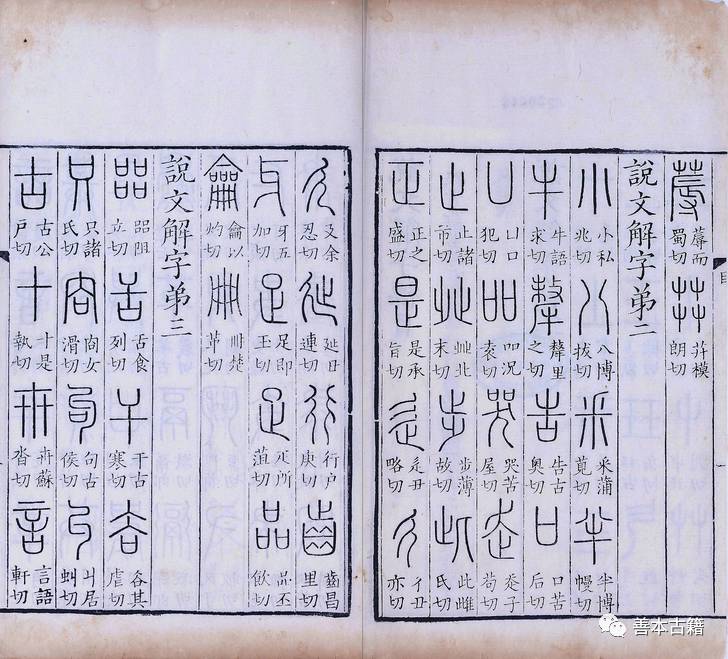 蓐 蓐而蜀切 茻 茻模朗切
說文解字弟二
小 小私兆切 八 八博拔切 釆 釆蒲莧切 半 半博幔切
牛 牛語求切 犛 犛里之切 告 告古奧切 口 口苦后切
凵 凵口犯切 吅 吅況袁切 哭 哭苦屋切 走 走子苟切
止 止諸市切 癶 癶北末切 步 步薄故切 此 此雌氏切
正 正之盛切 是 是承旨切 辵 辵丑略切 彳 彳丑亦切
廴 廴余忍切 㢟 㢟丑連切 行 行戶庚切 齒 齒昌里切
牙 牙五加切 足 足即玉切 疋 疋所菹切 品 品丕飲切
龠 龠以灼切 冊 冊楚革切
說文解字弟三
㗊 㗊阻立切 舌 舌食列切 干 干古寒切 𧮫 𧮫其虐切
只 只諸氏切 㕯 㕯女滑切 句 句古侯切 丩 丩居虯切
古 古公戶切 十 十是執切 卅 卅蘇沓切 言 言語軒切
善本古籍